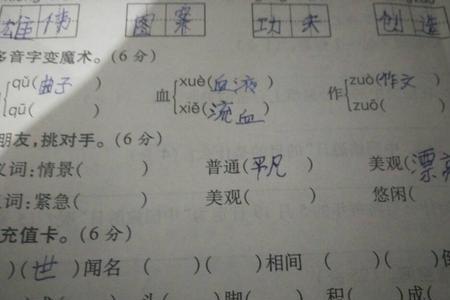 雄伟 图案 功夫 创造
多音字变魔术。(6分)
qǔ(曲子) 血{xuè(血液) 作{zuò(作文)
qū( ) xiě(流血) zuō( )
朋友,挑对手。(6分)
义词:情景( ) 普通(平凡) 美观(漂亮
义词:紧急( ) 美观( ) 悠闲(
充值卡。(6分)
)(世)闻名 ( )( )相间 ( )(